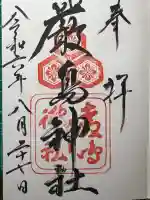 奉拝
厳島神社
令和六年八月二十七日